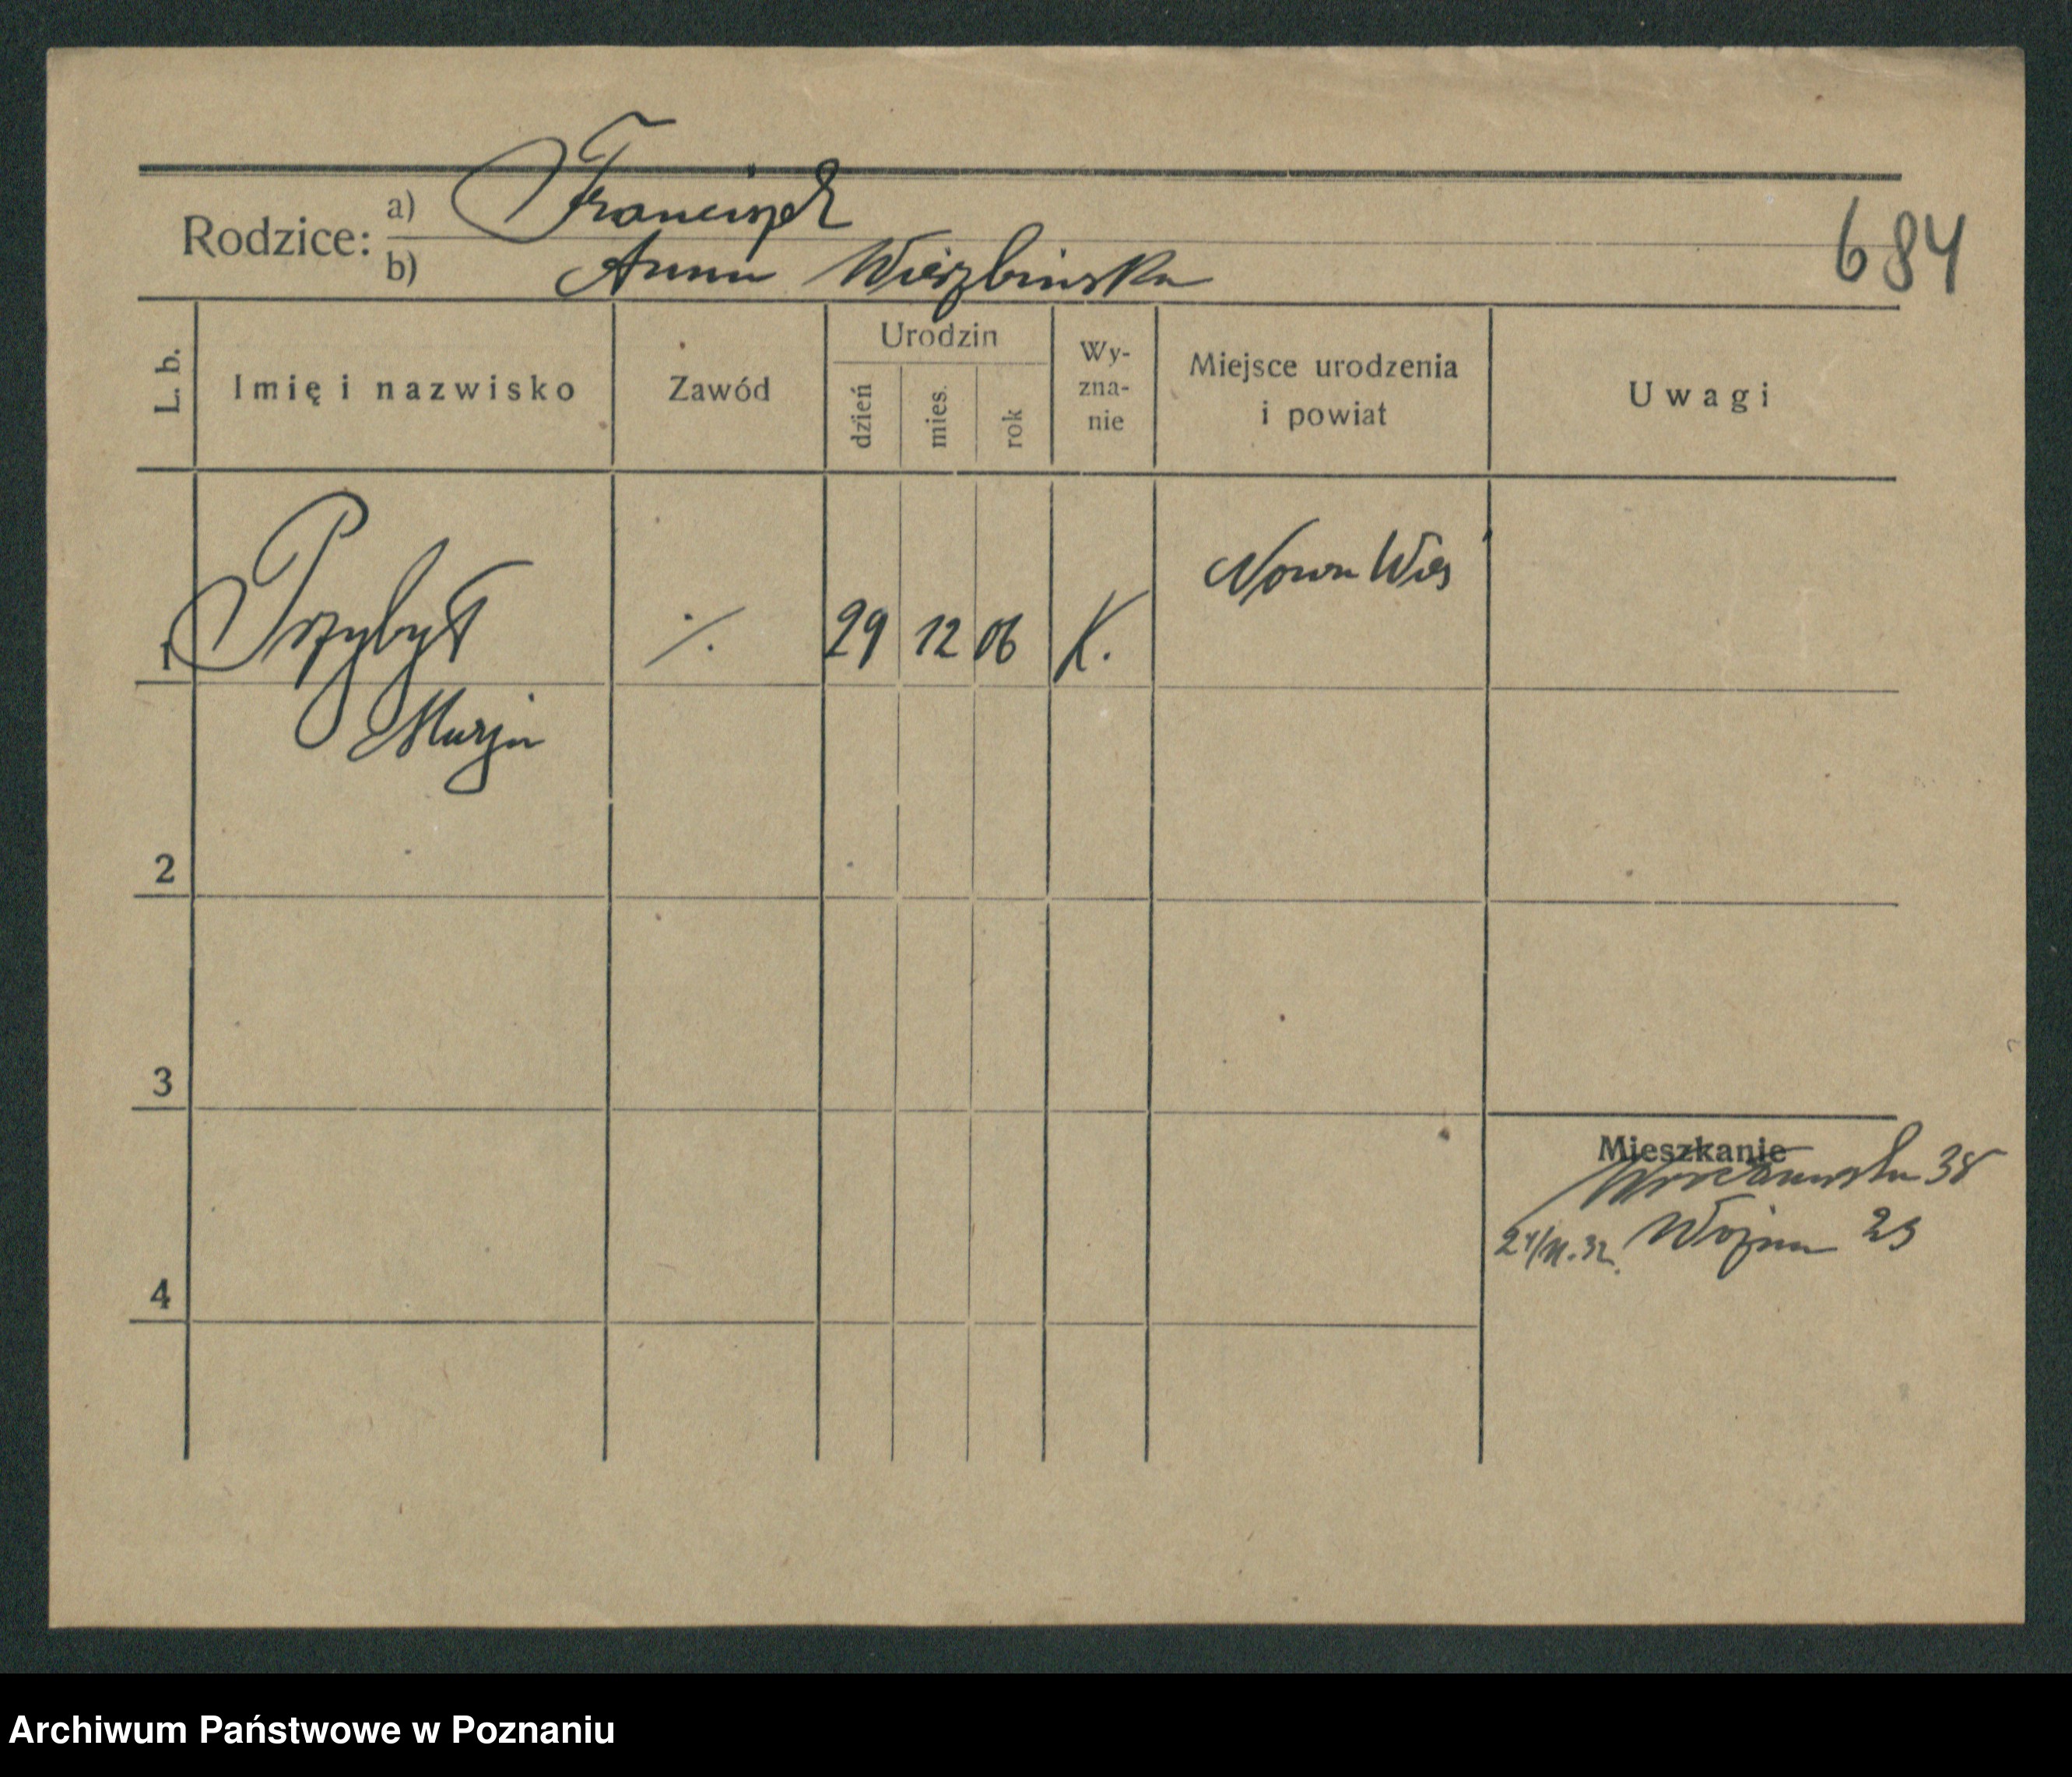 Rodzice: a) Franciszek
b) Anna Wierzbinska
684
L. b.
Imię i nazwisko
Zawód
Urodzin
dzień
mies.
rok
Wy-
zna-
nie
Miejsce urodzenia
i powiat
Uwagi
1 Przybył ./. 29 12 06 K. Nowa Wieś
Marja
2
3
Mieszkanie
Wrocławska 38
24/11.32. Wojna 23
4
Archiwum Państwowe w Poznaniu